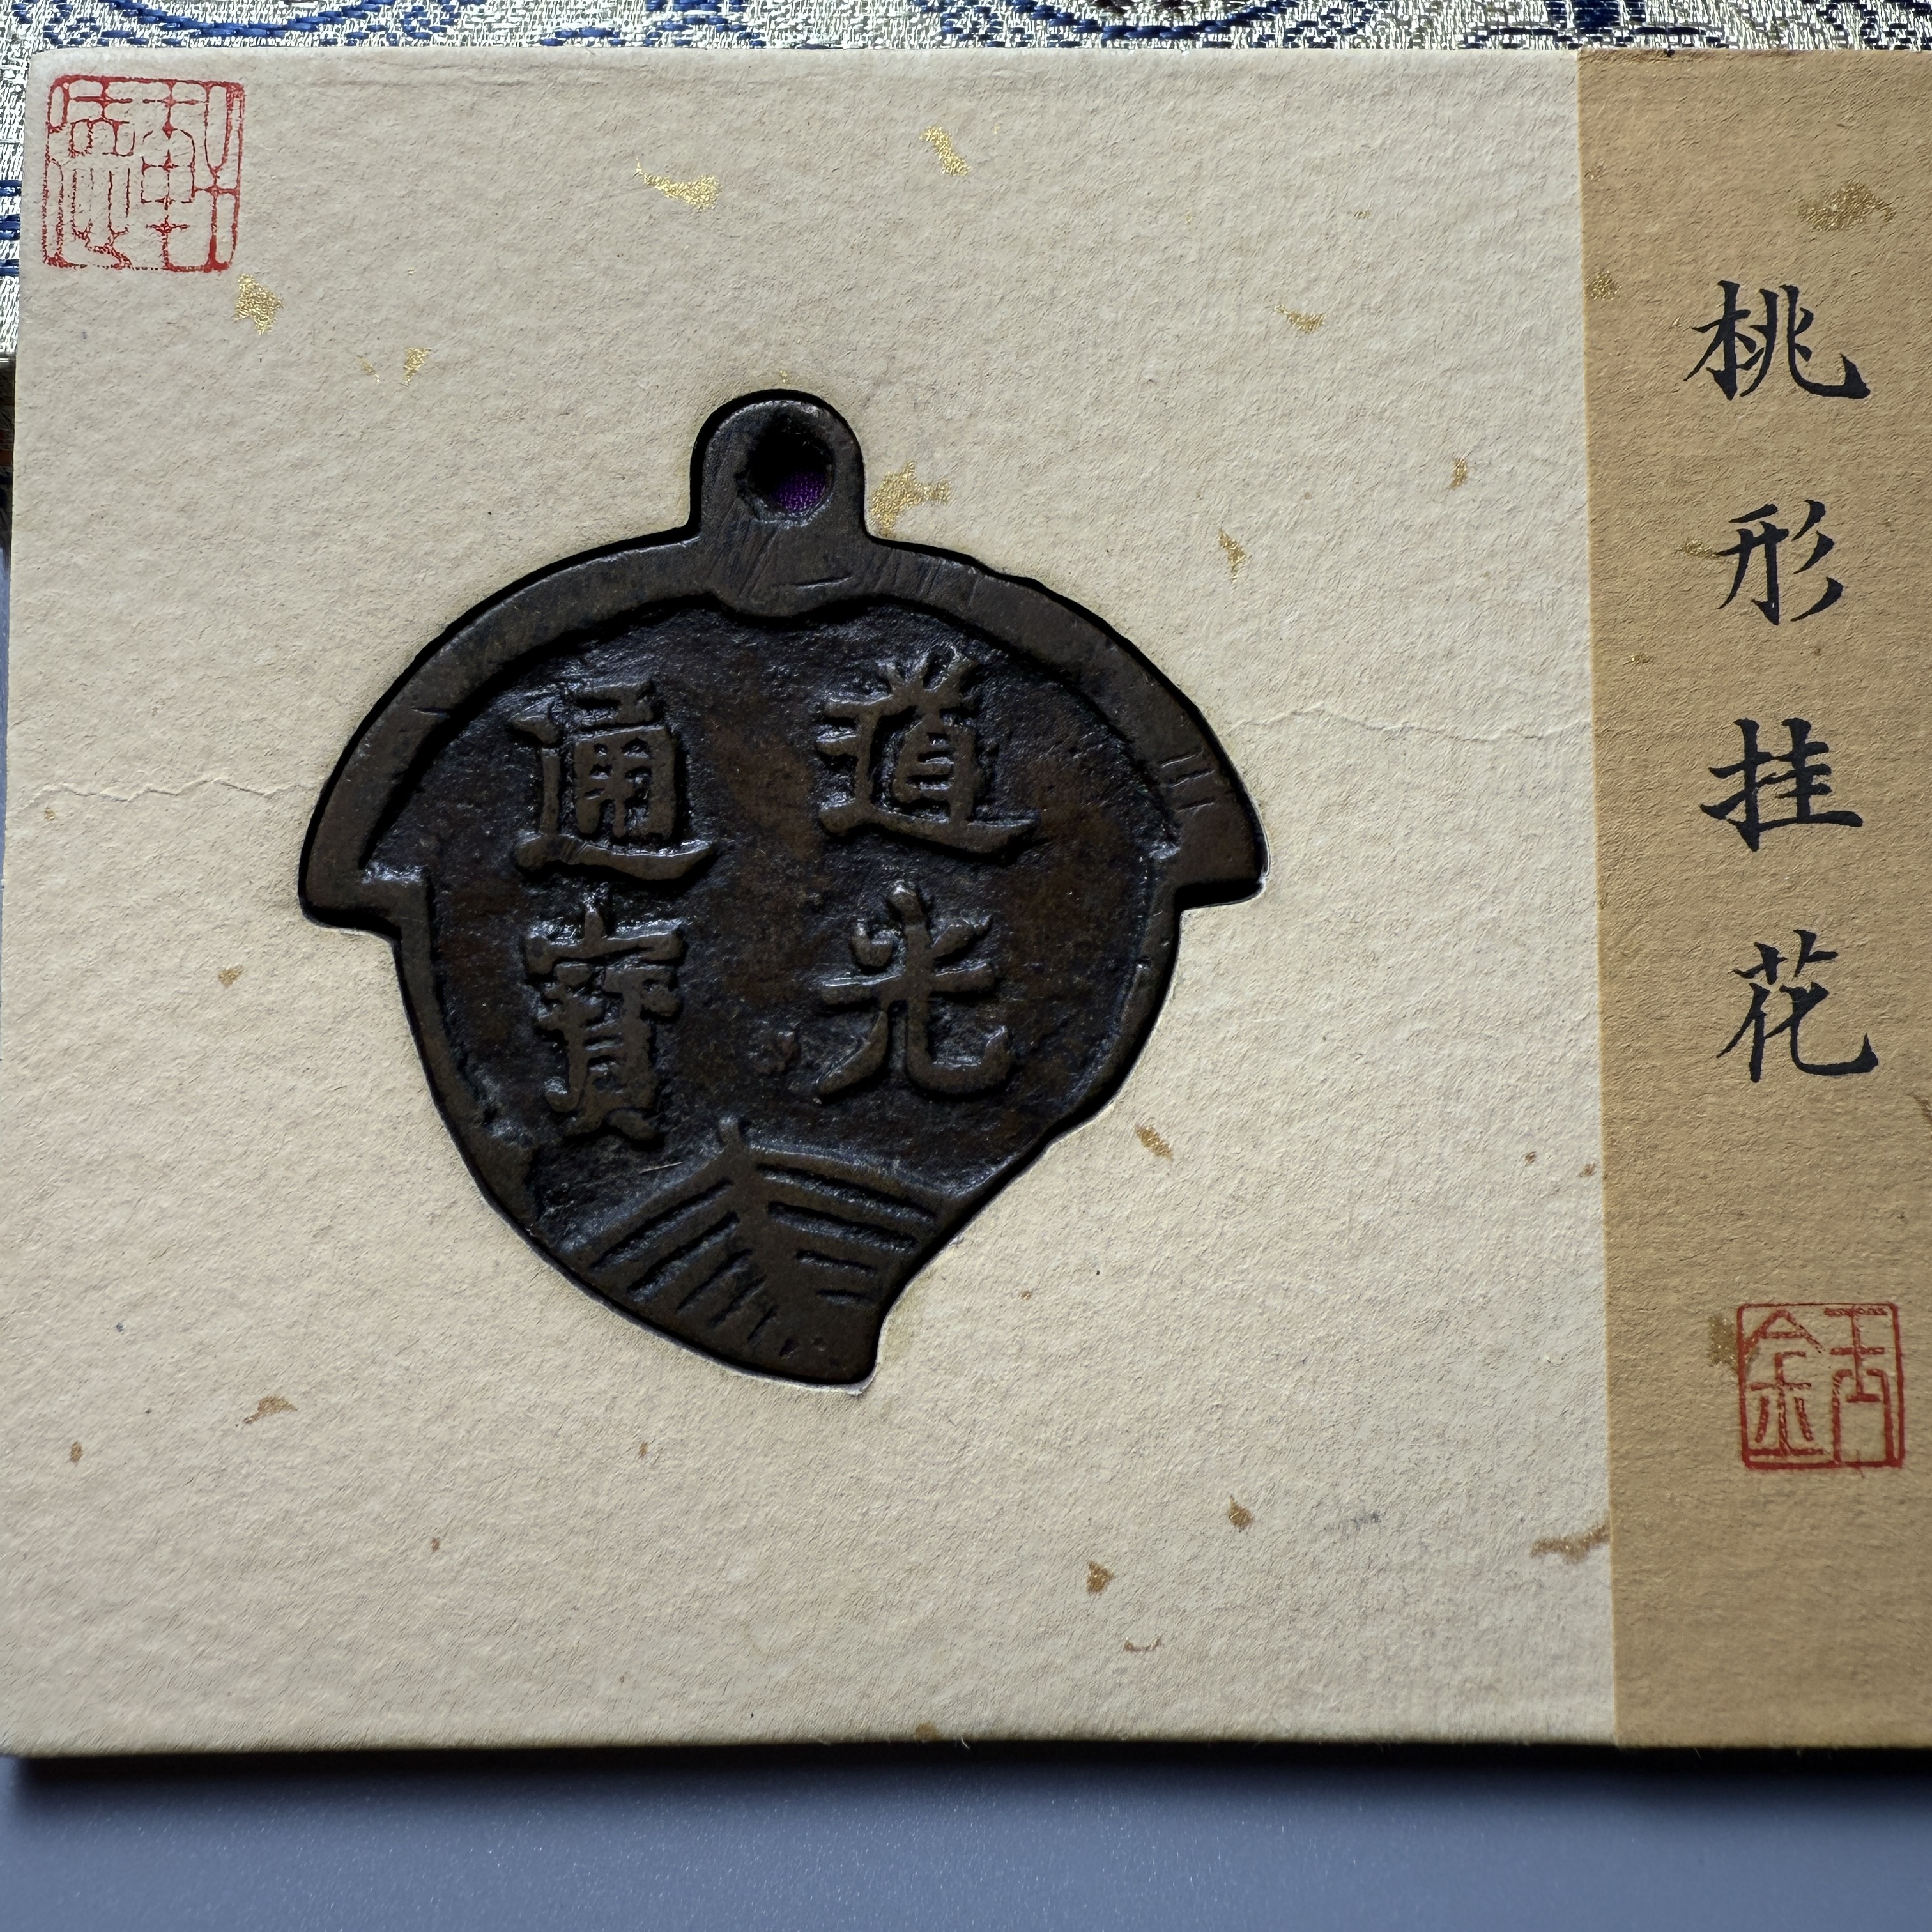 桃形挂花
道光
通寶